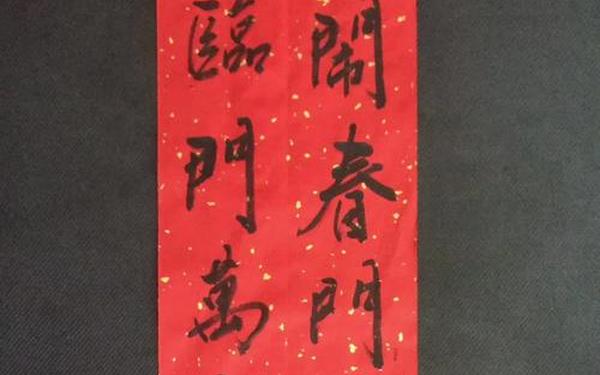 鬧春門
臨門萬